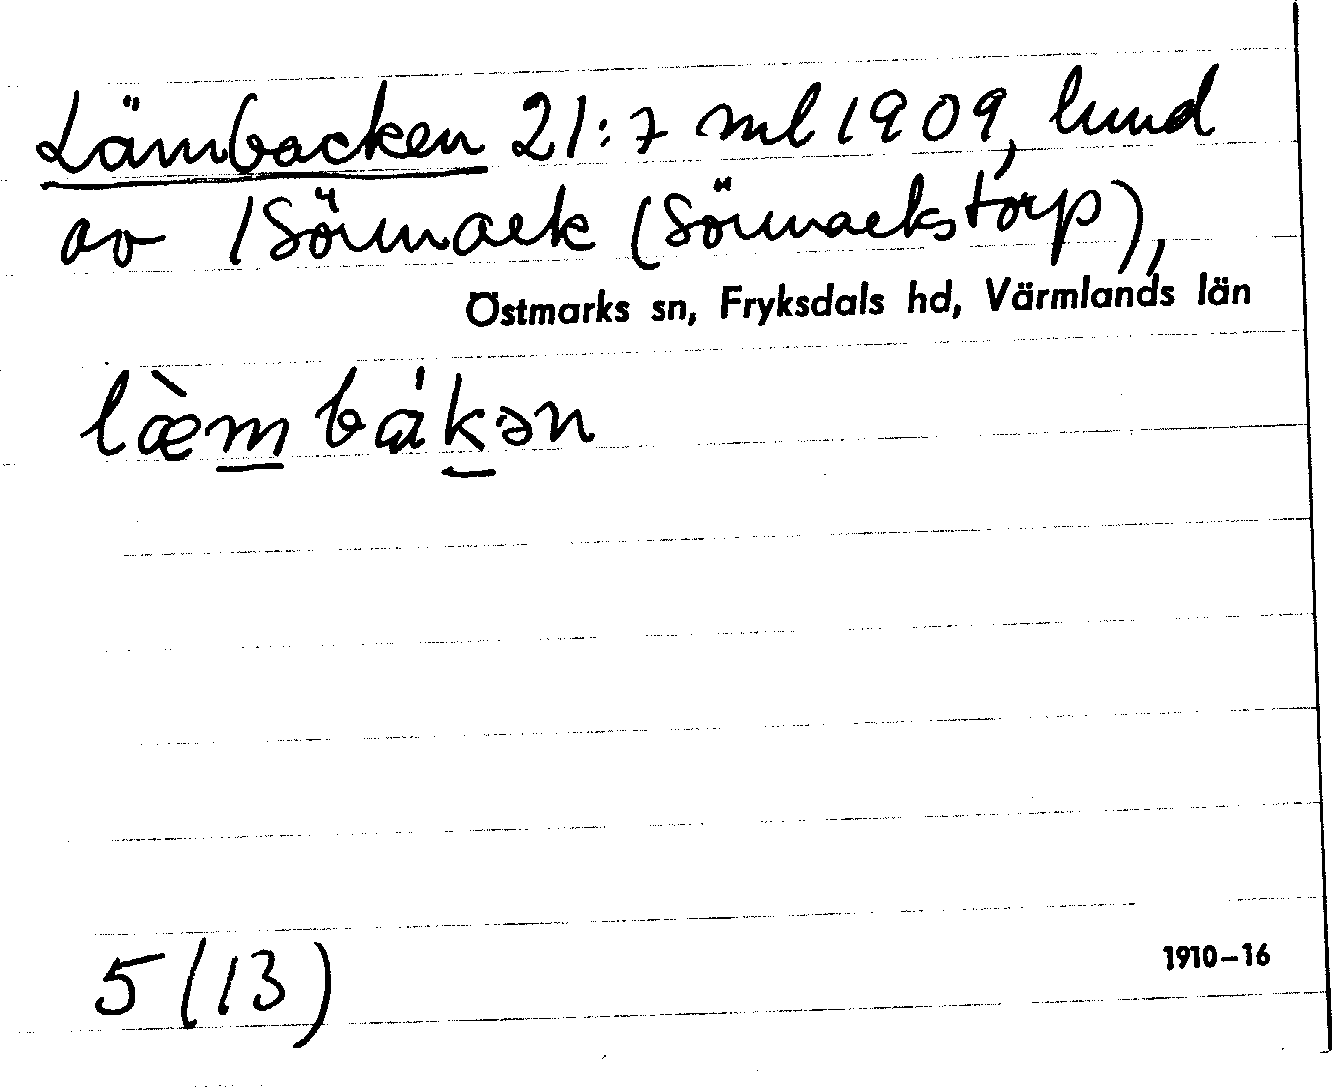 Lämbacken 21:7 ml 1909, lund
av 1 Sörmark (Sörmarkstorp),
Östmarks sn, Fryksdals hd, Värmlands län
læ̀m̲bák̲ən
5 (13)
1910–16